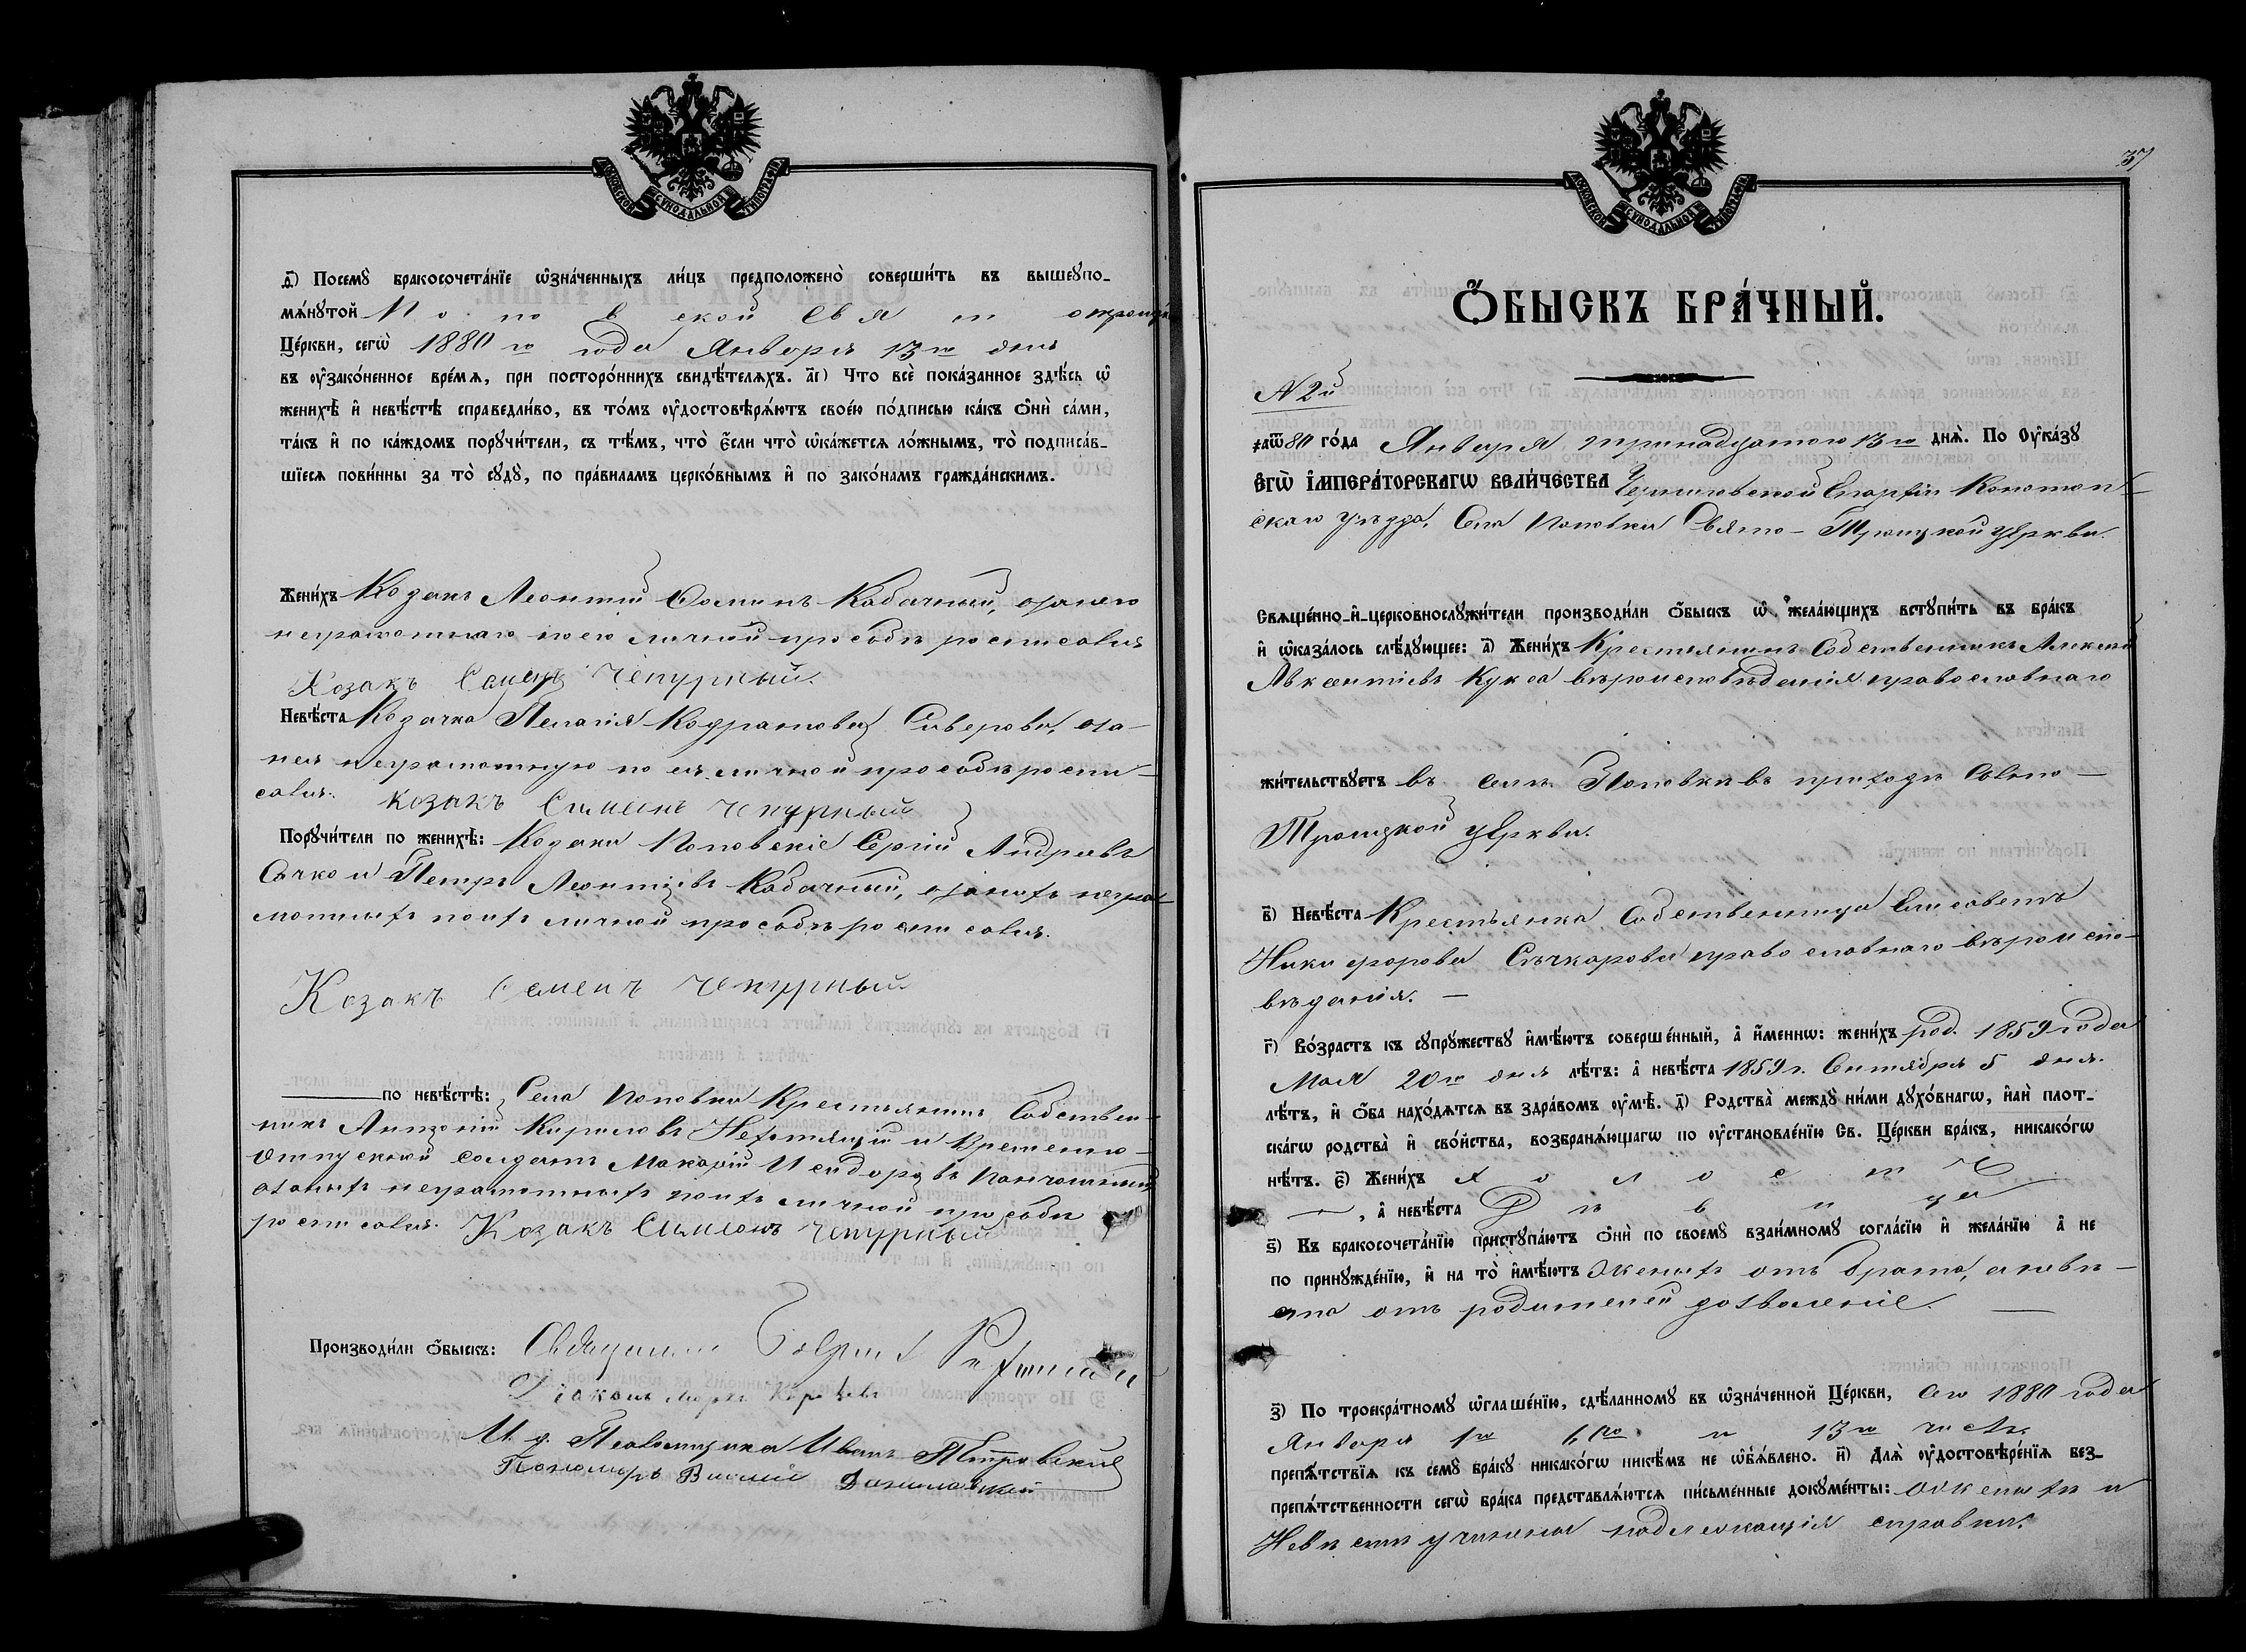 МОСКОВСКОЙ СѴНОДАЛЬНОЙ ТИПОГРАФІИ
д҃) Посемꙋ бракосочета́нїе ѡ҆зна́ченныхъ ли́цъ предположено̀ соверши́ть въ вышеꙋпо-
мѧ́нꙋтой Поповской Свято Троицкой
Це́ркви, сегѡ̀ 1880 го года Января 13 го дня
въ ѹ҆зако́ненное вре́мѧ, при посторо́ннихъ свидѣ́телѧхъ. а҃і) Что всѐ пока́занное здѣ́сь ѡ҆
женихѣ̀ и҆ невѣ́стѣ справедли́во, въ то́мъ ѹ҆достовѣрѧ́ютъ свое́ю по́дписью ка́къ ѻ҆нѝ са́ми,
та́къ и҆ по ка́ждомъ порꙋчи́тели, съ тѣ́мъ, что̀ є҆́сли что̀ ѡ҆ка́жетсѧ ло́жнымъ, то̀ подписа́в-
шїесѧ пови́нны за то̀ сꙋдꙋ̀, по пра́виламъ церко́внымъ и҆ по зако́намъ гражда́нскимъ.
Жени́хъ Козакъ Леонтій Фоминъ Кабачный, а за него
неграмотнаго по его личной просьбѣ росписался
Козакъ Семенъ Чепурный.
Невѣ́ста Козачка Пелагія Кодратова, а за-
нея неграмотную по ея личной просьбѣ роспи-
сался. Козакъ Симеонъ Чепурный
Порꙋчи́тели по женихѣ̀: Козаки Поповскіе Сергій Андреевъ
Сачко и Петръ Леонтіевъ Кабачный, а за нихъ негра-
мотныхъ по ихъ личной просьбѣ росписался.
Козакъ Семенъ Чепурный
по невѣ́стѣ: Села Поповки Крестьянинъ Собствен-
никъ Кириловъ и Временно-
отпускной солдатъ Макарій Исидоровъ
а за нихъ неграмотныхъ по ихъ личной просьбѣ
росписался. Козакъ Симеонъ Чепурный
Производи́ли ѻ҆́быскъ: Священникъ
Діаконъ
И. д. Псаломщика Иванъ Петровскій
Пономарь Василій
37
МОСКОВСКОЙ СѴНОДАЛЬНОЙ ТИПОГРАФІИ
Ѻ҆́БЫСКЪ БРА́ЧНЫЙ.
N 2й
҂аѿ 80 го́да Января, тринадцатого 13 го днѧ̀. По Оу҆ка́зꙋ
Є҆ГѠ̀ І҆МПЕРА́ТОРСКАГѠ ВЕЛИ́ЧЕСТВА Черниговской Епархіи Конотоп-
скаго уѣзда, Села Поповки Свято-Троицкой церкви.
Свѧще́нно-и҆-церковнослꙋжи́тели производи́ли ѻ҆́быскъ ѡ҆ жела́ющихъ встꙋпи́ть въ бра́къ
и҆ ѡ҆каза́лось слѣ́дꙋющее: а҃) Жени́хъ Крестьянинъ Собственникъ Алексѣй
Авксентіевъ Кукса вѣроисповѣданія православнаго
жи́тельствꙋетъ въ селѣ Поповкѣ въ приходѣ Свято-
Троицкой церкви.
в҃) Невѣ́ста Крестьянка Собственница Елисаветъ
Никифорова Сѣчкарова православнаго вѣроиспо-
вѣданія. —
г҃) Во́зрастъ къ сꙋпрꙋ́жествꙋ и҆мѣ́ютъ соверше́нный, а҆ и҆́меннѡ: жени́хъ род. 1859 года
Мая 20 го дня лѣ́тъ: а҆ невѣ́ста 1859 г. Сентября 5 дня.
лѣ́тъ, и҆ ѻ҆́ба нахо́дѧтсѧ въ здра́вомъ ѹ҆мѣ̀. д҃) Родства̀ междꙋ̀ ни́ми дꙋхо́внагѡ, и҆лѝ плот-
ска́гѡ родства̀ и҆ сво́йства, возбранѧ́ющагѡ по ѹ҆становле́нїю Св. Це́ркви бра́къ, никако́гѡ
нѣ́тъ. є҃) Жени́хъ Холостъ
—, а҆ невѣ́ста Дѣвица
ѕ҃) Къ бракосочета́нїю пристꙋпа́ютъ ѻ҆нѝ по своемꙋ̀ взаи́мномꙋ согла́сїю и҆ жела́нїю а҆ не
по принꙋжде́нїю, и҆ на то̀ и҆мѣ́ютъ Женихъ отъ брата, а невѣ-
ста отъ родителей дозволеніе. —
з҃) По троекра́тномꙋ ѡ҆глаше́нїю, сдѣ́ланномꙋ въ ѡ҆зна́ченной Це́ркви, Сего 1880 года
Января 1 го 6 го и 13 го числъ
препѧ́тствїѧ къ семꙋ̀ бра́кꙋ никако́гѡ никѣ́мъ не ѡ҆б̾ѧ́влено. и҃) Длѧ̀ ѹ҆достовѣре́нїѧ без-
препѧ́тственности сегѡ̀ бра́ка представлѧ́ютсѧ пи́сьменные докꙋме́нты: О женихѣ и
Невѣстѣ учинена надлежащія справки.